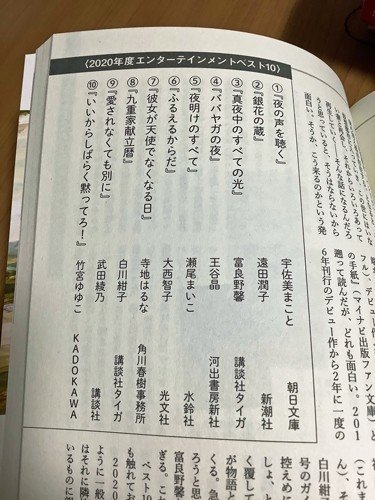 うと思っていると、そうはならないから
面白い。そうか、こう来るのかという発
の手紙』(マイナビ出版ファン文庫)と
遡って読んだが、どれも面白い。201
6年刊行のデビュー作から2年に一度の
〈2020年度エンターテインメントベスト10〉
①『夜の声を聴く』 宇佐美まこと 朝日文庫
②『銀花の蔵』 遠田潤子 新潮社
③『真夜中のすべての光』 富良野馨 講談社タイガ
④『ババヤガの夜』 王谷晶 河出書房新社
⑤『夜明けのすべて』 瀬尾まいこ 水鈴社
⑥『ふるえるからだ』 大西智子 光文社
⑦『彼女が天使でなくなる日』 寺地はるな 角川春樹事務所
⑧『九重家献立暦』 白川紺子 講談社タイガ
⑨『愛されなくても別に』 武田綾乃 講談社
⑩『いいからしばらく黙ってろ!』 竹宮ゆゆこ KADOKAWA
白川紺子
号のガ
控えめ
しょ、と
く覆して
が物語
くる。急
ろうと思
ぎる。こ
富良野馨
ベスト10
も触れてお
2020
ように一般
はそれに隣
いるものに